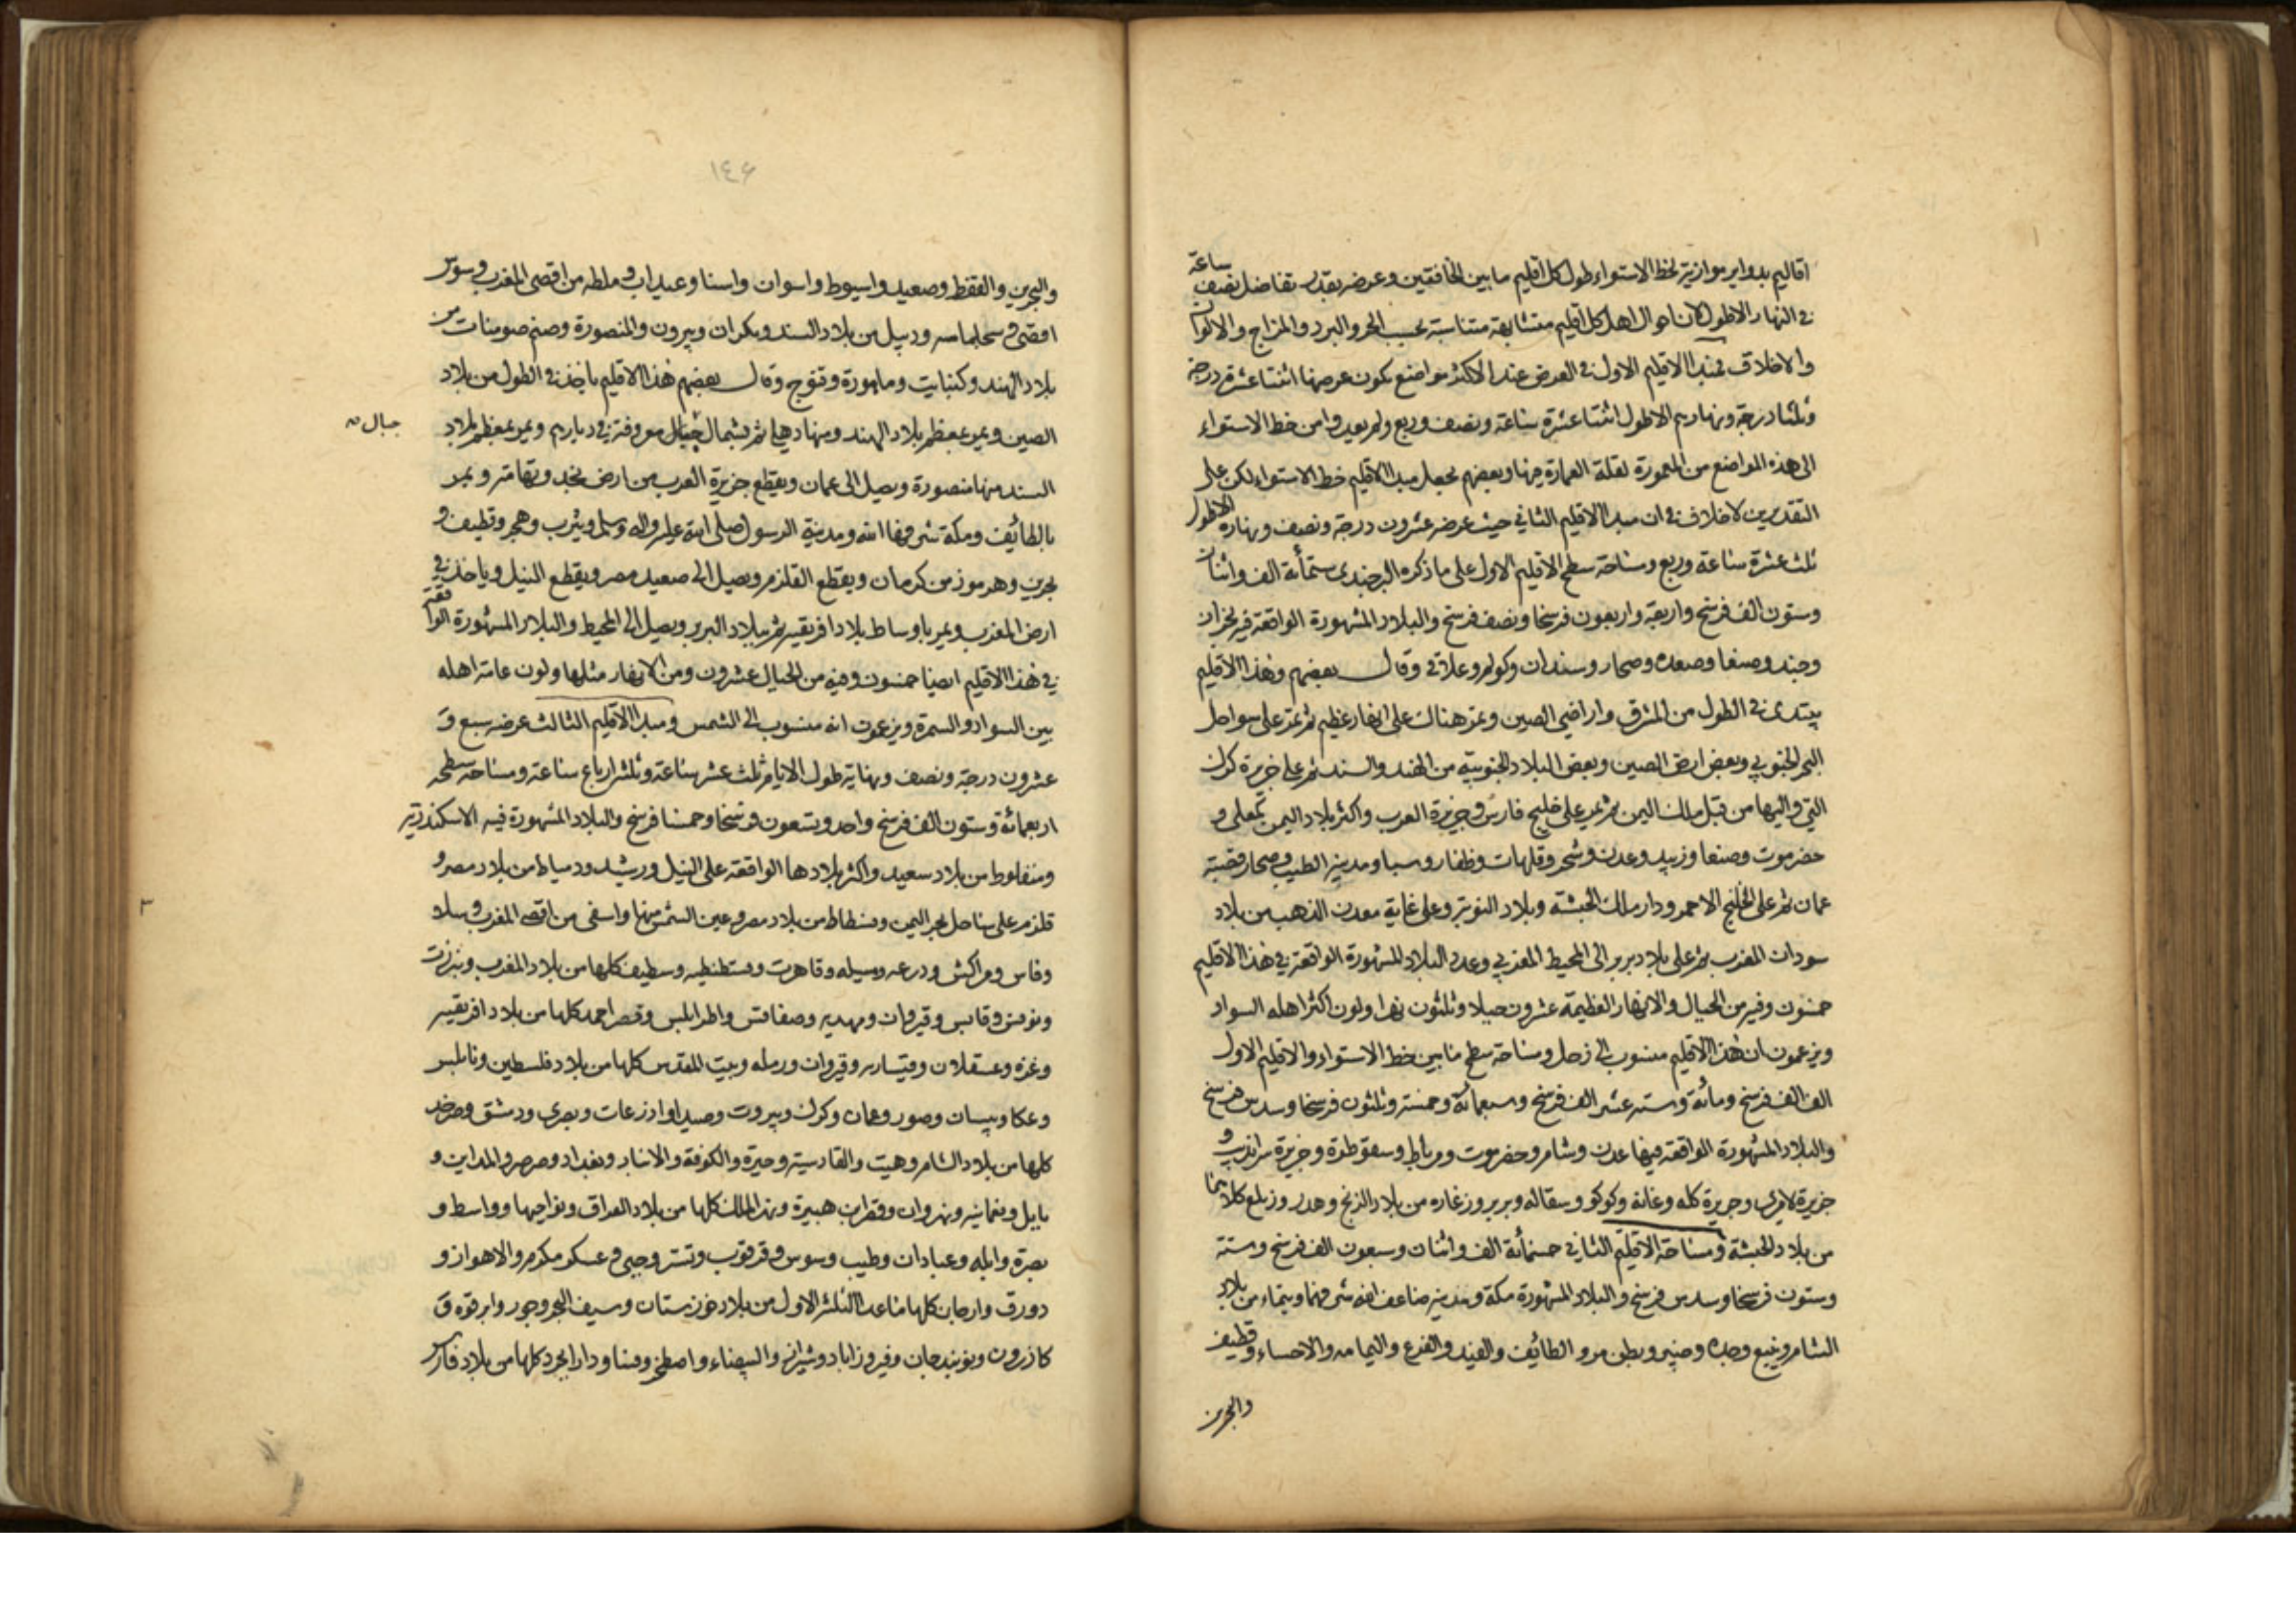 اقاليم بدواير موازية لخط الاستواء طول كل اقليم ما بين الخافقين وعرضه بقدر تفاضل نصف ساعة
في النهار الاطول لان احوال اهل كل اقليم متشابهة متناسبة بحسب الحر والبرد والمزاج والالوان
والاخلاق فمبدا الاقليم الاول في العرض عند الاكثر مواضع يكون عرضها اثنتا عشرة درجة
وثلثا درجة ونهارهم الاطول اثنتا عشرة ساعة ونصف وربع ولم يعدوا من خط الاستواء
الى هذه المواضع من المعمورة لقلة العمارة فيها وبعضهم يجعل مبدا الاقليم خط الاستواء لكن على
التقديرين لا خلاف في ان مبدا الاقليم الثاني حيث عرضه عشرون درجة ونصف ونهاره الاطول
ثلث عشرة ساعة وربع ومساحة سطح الاقليم الاول على ما ذكره البرجندى ستمائة الف واثنان
وستون الف فرسخ واربعة واربعون فرسخا ونصف فرسخ والبلاد المشهورة الواقعة فيه نجران
وجند وصنعا وصعده وصحار وسندان وكولم وعلاقى وقال بعضهم وهذا الاقليم
يبتدى في الطول من المشرق واراضي الصين وتمر هناك على انهار عظيم ثم تمر على سواحل
البحر الجنوبي وبعض ارض الصين وبعض البلاد الجنوبية من الهند والسند ثم على جزيرة كرك
التي واليها من قبل ملك اليمن ثم يمر على خليج فارس وجزيرة العرب واكثر بلاد اليمن كمعلى و
حضرموت وصنعا وزبيد وعدن وشحر وقلهات وظفار وسبا ومدينة الطيب وصحار قصبة
عمان ثم على الخليج الاحمر ودار ملك الحبشة وبلاد النوبة وعلى غاية معدن الذهب من بلاد
سودان المغرب ثم على بلاد بربر الى المحيط المغربي وعدد البلاد المشهورة الواقعة في هذا الاقليم
خمسون وفيه من الجبال والانهار العظيمة عشرون جبلا وثلثون نهرا ولون اكثر اهله السواد
ويزعمون ان هذا الاقليم منسوب الى زحل ومساحة سطح ما بين خط الاستواء والاقليم الاول
الف الف فرسخ ومائة وستة عشر الف فرسخ وسبعمائة وخمسة وثلثون فرسخا وسدس فرسخ
والبلاد المشهورة الواقعة فيها عدن وشام وحضرموت ومرباط وسقوطرة وجزيرة سرانديب و
جزيرة لامرى وجزيرة كله وغانة وكوكو وسفاله وبربر وزغاره من بلاد الزنج وهدر وزيلع كلاهما
من بلاد الحبشة ومساحة الاقليم الثاني خمسمائة الف واثنان وسبعون الف فرسخ وستة
وستون فرسخا وسدس فرسخ والبلاد المشهورة مكة ومدينة ضاعف الله شرفهما وتيماء من بلاد
الشام وينبع وجده وخيبر وبطن مر والطائف والفيد والفرع واليمامه والاحساء وقطيف
والبحرين
١٤٦
والبحرين والقفط وصعيد واسيوط واسوان واسنا وعيداب وملطه من اقصى المغرب وسوس
اقصى وسجلماسه وديبل من بلاد السند ومكران وبيرون والمنصورة وصنم صومنات من
بلاد الهند وكنبايت وماهورة وقنوج وقال بعضهم هذا الاقليم ياخذ في الطول من بلاد
الصين ويمر بمعظم بلاد الهند ومنها دهلى ثم بشمال جبال معروفة في ديارهم ويمر بمعظم بلاد
جبال
السند منها منصورة ويصل الى عمان ويقطع جزيرة العرب من ارض نجد وتهامة ويمر
بالطائف ومكة شرفها الله ومدينة الرسول صلى الله عليه واله وسلم ويثرب وهجر وقطيف و
بحرين وهرموز من كرمان ويقطع القلزم ويصل الى صعيد مصر ويقطع النيل وياخذ في
ارض المغرب ويمر باوساط بلاد افريقيه ثم ببلاد البربر ويصل الى المحيط والبلاد المشهورة الواقعة
في هذا الاقليم ايضا خمسون وفيه من الجبال عشرون ومن الانهار مثلها ولون عامة اهله
بين السواد والسمرة ويزعمون انه منسوب الى الشمس ومبدا الاقليم الثالث عرضه سبع و
عشرون درجة ونصف ونهاية طول الايام ثلث عشر ساعة وثلثة ارباع ساعة ومساحة سطحه
اربعمائة وستون الف فرسخ واحد وتسعون فرسخا وخمسا فرسخ والبلاد المشهورة فيه الاسكندرية
ومنفلوط من بلاد سعيد واكثر بلادها الواقعة على النيل ورشيد ودمياط من بلاد مصر و
قلزم على ساحل بحر اليمن وفسطاط من بلاد مصر وعين الشمس منها واسفى من اقصى المغرب وسلا
وفاس ومراكش ودرعه ومسيله وقاهرت وقسطنطيه وسطيف كلها من بلاد المغرب وبنزرت
وتونس وقابس وقيروان ومهديه وصفاقس واطرابلس وقصر احمد كلها من بلاد افريقيه
وغزه وعسقلان وقيساريه وقيروان ورمله وبيت المقدس كلها من بلاد فلسطين ونابلس
وعكا وبيسان وصور وعمان وكرك وبيروت وصيدا واذرعات وبصرى ودمشق وصرخد
كلها من بلاد الشام وهيت والقادسية وحيرة والكوفة والانبار وبغداد وصرصر والمداين و
بابل ونعمانيه ونهروان وقصر ابن هبيرة ونهر الملك كلها من بلاد العراق ونواحيها وواسط و
بصرة وابله وعبادان وطيب وسوس وقرقوب وتستر وجبى وعسكر مكرم والاهواز و
دورق وارجان كلها ما عدا الثلثة الاول من بلاد خوزستان وسيف البحر وجور وابرقوه و
كازرون ونوبندجان وفيروزاباد وشيراز والبيضاء واصطخر وفسا ودارابجرد كلها من بلاد فارس